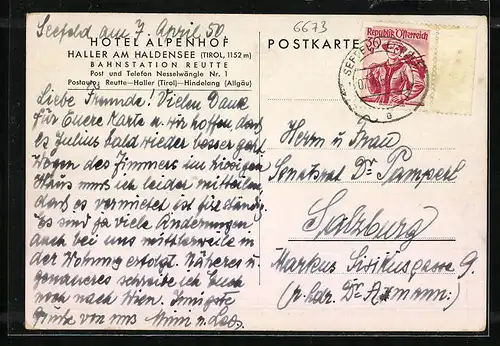 Seefeld am 7. April 50
HOTEL ALPENHOF
HALLER AM HALDENSEE (TIROL, 1152 m)
BAHNSTATION REUTTE
Post und Telefon Nesselwängle Nr. 1
Postauto: Reutte—Haller (Tirol)—Hindelang (Allgäu)
Liebe Freunde! Vielen Dank
für Euere Karte u. wir hoffen daß
es Julius bald wieder besser geht.
Wegen des Zimmers im hiesigen
Haus muß ich leider mitteilen,
daß es vermietet ist ständig.
Es sind ja viele Änderungen
auch bei uns mittlerweile in
der Wohnung erfolgt. Näheres u.
genaueres schreibe ich Euch
noch nach Wien. Innigste
Grüße von uns Mimi u.
6673
POSTKARTE
Republik Österreich
30
SEEFELD
a
Herrn u Frau
Senatsrat Dr
Salzburg
Markus Sittikusgasse 9.
(p. Adr. Dr.